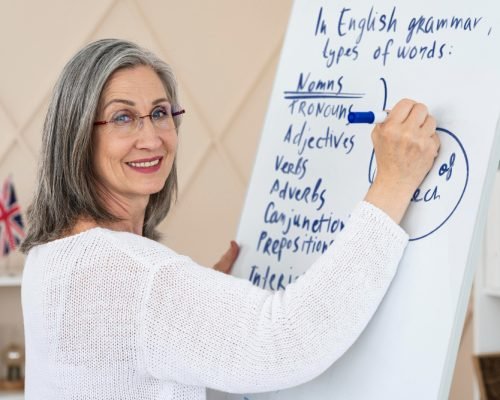 In English grammar,
types of words:
Nomns
PRONOUNS
Adjectives
Verbs
Adverbs
Conjunction
Preposition
of